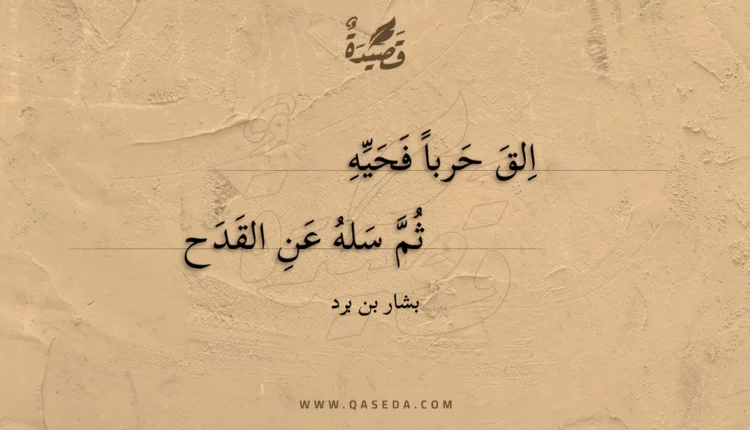 قَصِيدَةٌ
اِلقَ حَرباً فَحَيِّهِ
ثُمَّ سَلهُ عَنِ القَدَح
بشار بن برد
WWW.QASEDA.COM